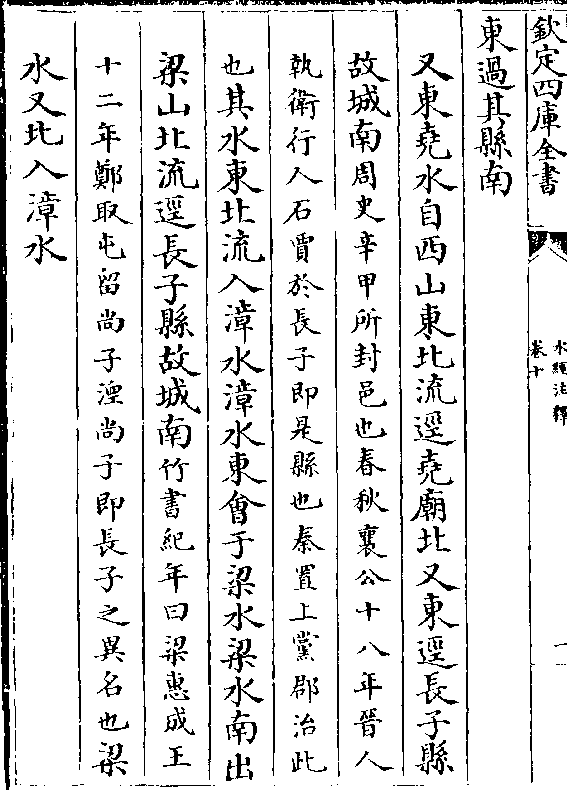 欽定四庫全書
水經注釋
卷十
一
東過其縣南
又東堯水自西山東北流逕堯廟北又東逕長子縣
故城南周史辛甲所封邑也春秋襄公十八年晉人
執衛行人石買於長子即是縣也秦置上黨郡治此
也其水東北流入漳水漳水東會于梁水梁水南出
梁山北流逕長子縣故城南竹書紀年曰梁惠成王
十二年鄭取屯留尚子湼尚子即長子之異名也梁
水又北入漳水